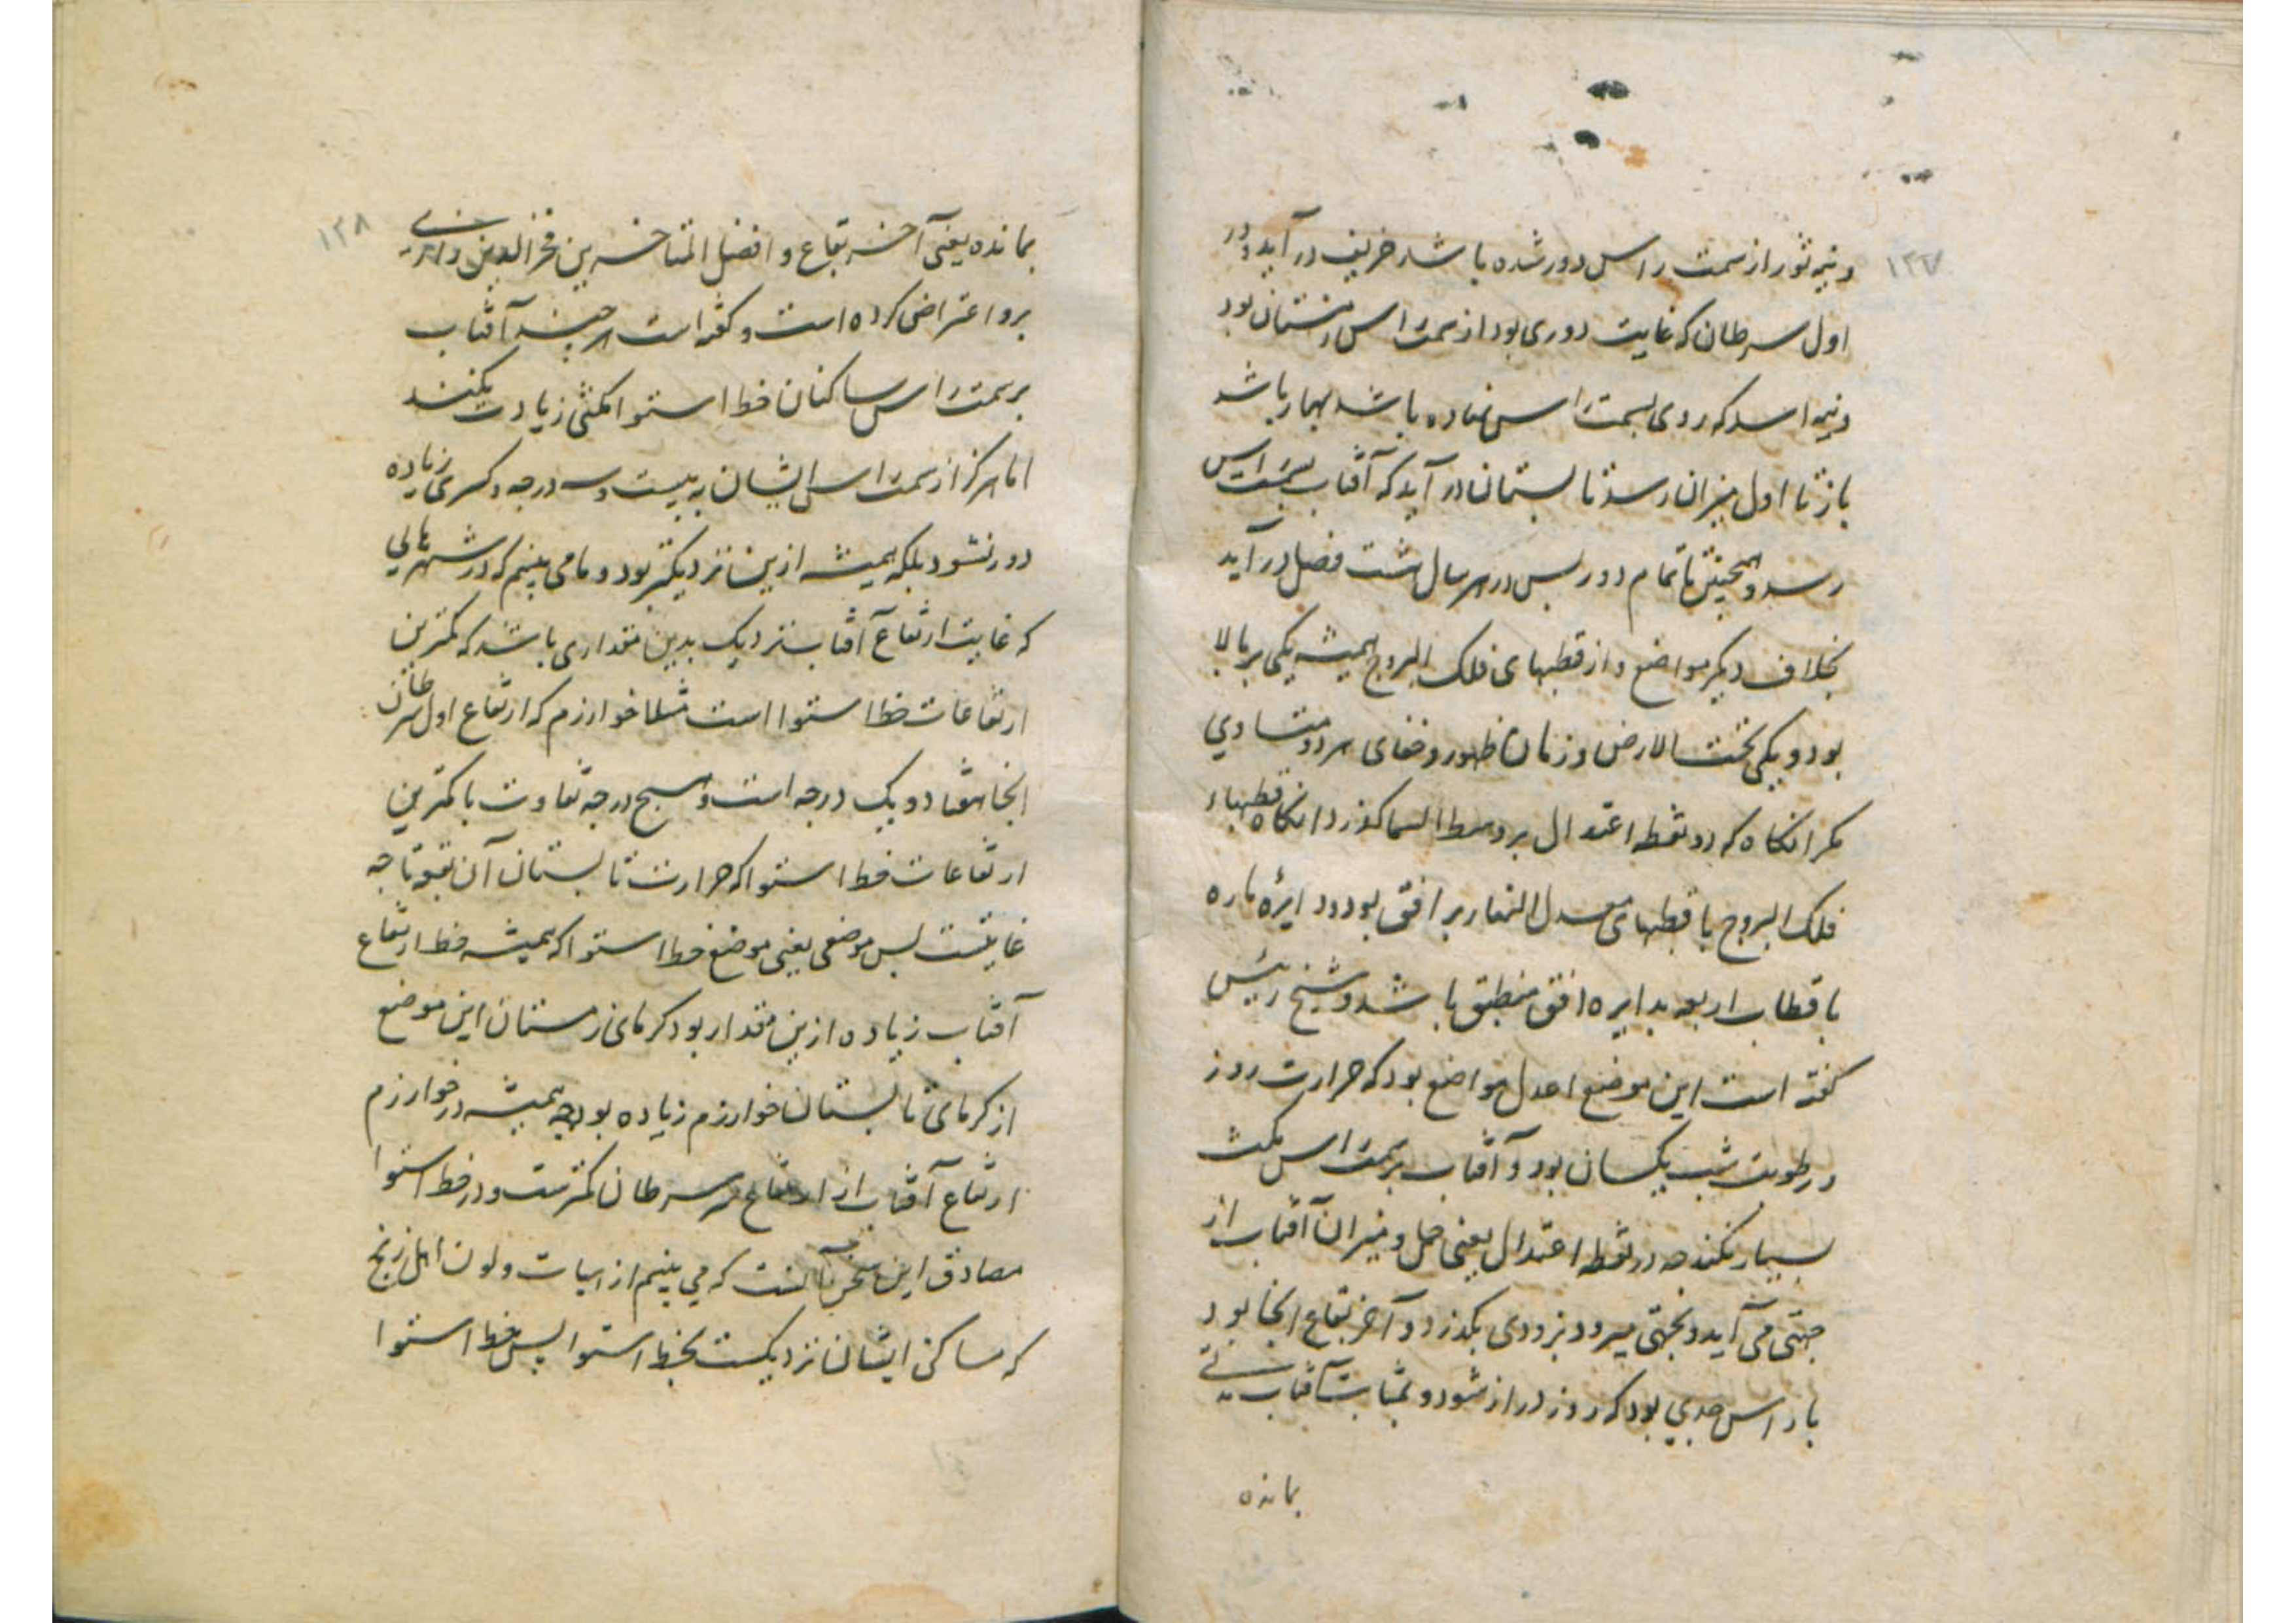 ۱۲۷
و نیمه ثور از سمت راس دور شده باشد خریف در آید و در
اول سرطان که غایت دوری بود از سمت راس زمستان بود
و نیمه اسد که روی بسمت راس نهاده باشد بهار باشد
باز تا اول میزان رسد تابستان در آید که آفتاب بسمت راس
رسد و همچنین تا تمام دور پس در هر سال هشت فصل در آید
بخلاف دیگر مواضع و از قطبهای فلک البروج همیشه یکی بر بالا
بود و یکی تحت الارض و زمان ظهور و خفای هر دو متساوی
مگر انگاه که دو نقطه اعتدال بر وسط السما گذرد انگاه قطبهاء
فلک البروج با قطبهای معدل النهار بر افق بود و دایرهٔ ماره
باقطاب اربعه بدایره افق منطبق باشد و شیخ رئیس
گفته است این موضع اعدل مواضع بود که حرارت روز
و رطوبت شب یکسان بود و آفتاب بر سمت راس مکث
بسیار نکند چه در نقطه اعتدال یعنی حمل و میزان آفتاب از
جهتی می آید و بجهتی میرود بزودی بگذرد و آخر بقاع انجا بود
با راس جدی بود که روز دراز شود و بمثابت آفتاب
بمانده
۱۲۸
بمانده یعنی آخر بقاع و افضل المتاخرین فخر الدین رازی
برو اعتراض کرده است و گفته است هر چند آفتاب
بر سمت راس ساکنان خط استوا مکثی زیادت نکند
اما هرگز از سمت راس ایشان به بیست و سه درجه و کسری زیاده
دور نشود بلکه همیشه ازین نزدیکتر بود و ما می بینیم که در شهرهایی
که غایت ارتفاع آفتاب نزدیک بدین مقداری باشد که کمترین
ارتفاعات خط استوا است مثلا خوارزم که ارتفاع اول سرطان
انجا هفتاد و یک درجه است و پنج درجه تفاوت با کمترین
ارتفاعات خط استوا که حرارت تابستان آن بقعه تا چه
غایتست پس موضعی یعنی موضع خط استوا که همیشه خط ارتفاع
آفتاب زیاده ازین مقدار بود گرمای زمستان این موضع
از گرمای تابستان خوارزم زیاده بود چه همیشه در خوارزم
ارتفاع آفتاب از ارتفاع سر سرطان کمترست و در خط استوا
مصادق این سخن آنست که می بینیم از ابیات و لون اهل زنج
که مساکن ایشان نزدیکست بخط استوا پس خط استوا